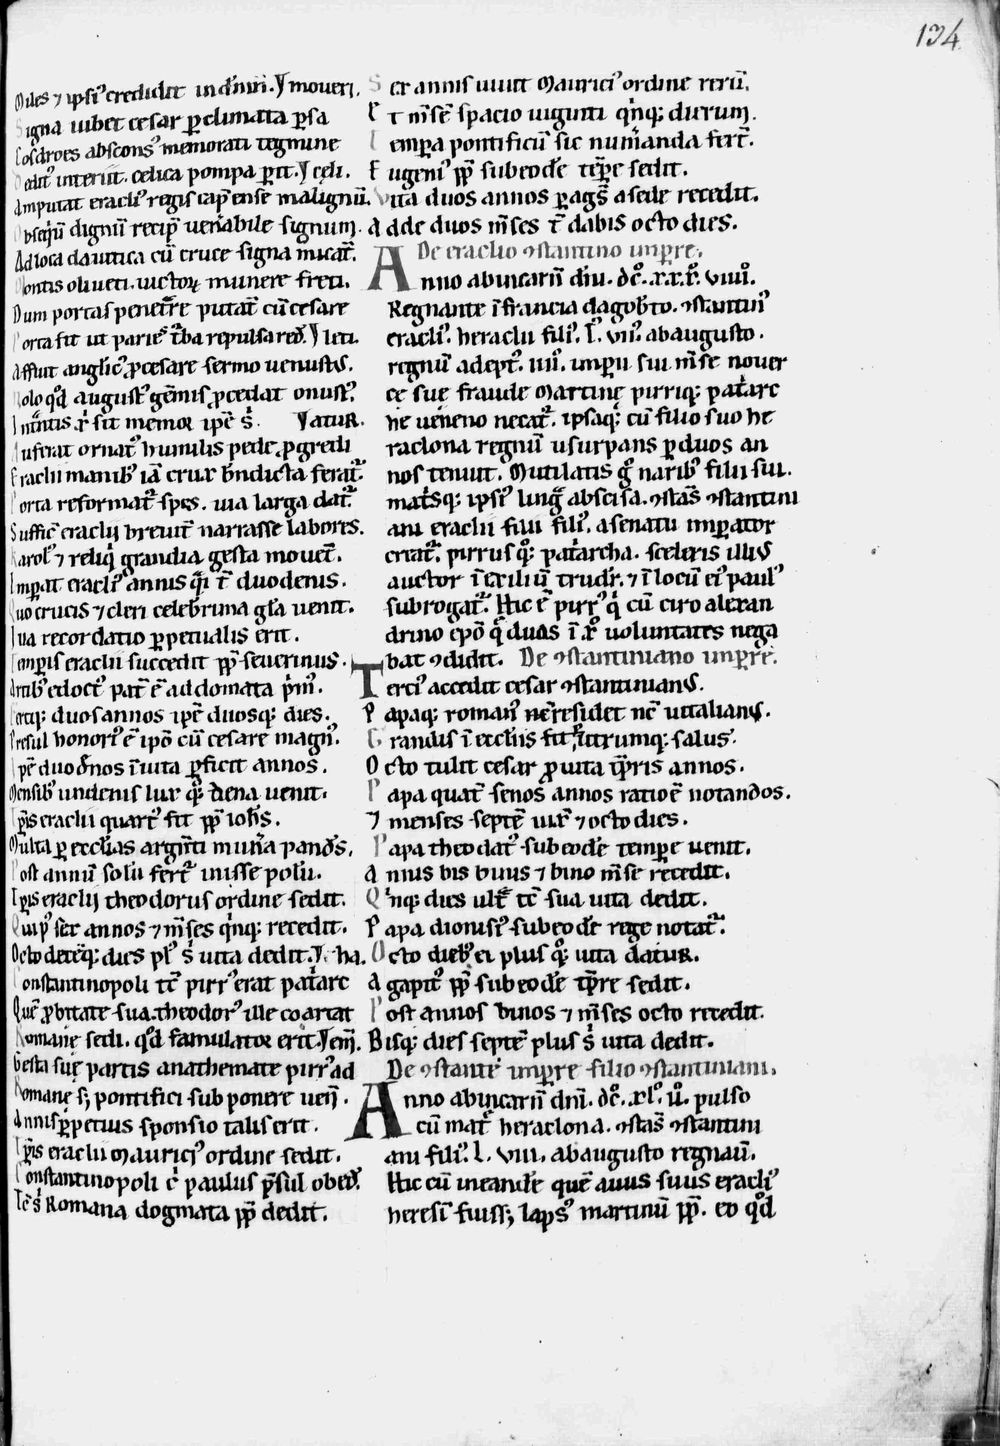 134
Miles ⁊ ipsi᾽ credidit in dn̄iri. moueri.
Signa iubet cesar ꝑ climata ꝑsa
Cosdroes abscons᾽ memorati tegmine
Dedit᾽ interiit. celica pompa ꝑit. celi.
Amputat eracli᾽ regis caput ense malignū.
Obseq̄ū dignū recipit uen̄abile signum.
Ad loca dauitica cū cruce signa micat᾽.
Montis oliueti. uictoꝝ munere freti.
Dum portas penet̄re putat᾽ cū cesare
Porta fit ut paries t̄ba repulsa red᾽. leti.
Affuit anglic᾽ ꝓcesare sermo uenust᾽.
Nolo qd̄ august᾽ gēmis ꝓcedat onust᾽.
sit memor ip̄e s̄. atur.
Auferat ornat᾽ humilis pede ꝓgredi
Eraclii manib᾽ iā crux bn̄dicta ferat᾽.
Porta reformat᾽ spes. uia larga dat᾽.
Suffic̄ eraclij breuit᾽ narrasse labores.
Karol᾽ ⁊ reliq̄ grandia gesta mouet᾽.
Imperat eracli᾽ annis duodenis.
Quo crucis ⁊ cleri celebrima gl̄a uenit.
Sua recordatio ꝑpetualis erit.
Temporis eraclii succedit pp̄ seuerinus.
Artib᾽ edoct᾽ pat̄ ē ad domata p̄im᾽.
Fertq; duos annos ip̄e duosq; dies.
Presul honori᾽ ē ipō cū cesare magn᾽.
Ip̄e duodenos ī uita ꝑficit annos.
Mensib᾽ undenis lux q̄; dena uenit.
Tp̄ris eraclii quart᾽ fit pp̄ ioh̄s.
Multa ꝑ ecclias argn̄ti mun̄a pandēs.
Post annū solū fert᾽ iuisse polū.
Tp̄ris eraclij theodorus ordine sedit.
Quip᾽ sex annos ⁊ m̄ses q̄nq; recedit.
Octo deceq; dies pl᾽ s̄ uita dedit. cha.
Constantinopoli tc̄ pirr᾽ erat pat̄arc
Quē ꝓbitate sua. theodor᾽ ille coartat
Romanę sedi. qd̄ famulator erit. em̄.
Gesta suę partis anathemate pirr᾽ ad
Romanę s; pontifici subponere uen̄.
Annis ꝑpetuis sponsio talis erit.
Tp̄ris eraclii maurici᾽ ordine sedit.
Constantinopoli c̄ paulus p̄sul obed᾽.
Tc̄ s̄ Romana dogmata pp̄ dedit.
Sex annis uiuit maurici᾽ ordine rerū.
Et m̄se spacio uiginti q̄nq; dierum.
Tempera pontificū sic num̄anda fert᾽.
Eugeni᾽ pp̄ sub eodē tp̄re sedit.
Vita duos annos ꝑages a sede recedit.
Adde duos m̄ses t̄ dabis octo dies.
De eraclio ꝯstantino imp̄re.
Anno ab incarn̄ dn̄i. dc̄. xxx. viiii.
Regnante ī francia dagobto. ꝯstantin᾽
eracli᾽. heraclii fili᾽. l᾽. vii᾽. ab augusto.
regnū adept᾽. iiii᾽. imperii sui m̄se nouer
cę suę fraude martinę pirriq; pat̄arc
he ueneno necat᾽. ipsaq; cū filio suo he
raclona regnū usurpans ꝑ duos an
nos tenuit. Mutilatis g̊ narib᾽ filii sui.
mat̄sq; ipsi᾽ lingua abscisa. ꝯstās ꝯstantini
ani eraclii filii fili᾽. a senatu imperator
creat᾽. pirrus q̄; pat̄archa. sceleris illi᾽
auctor ī exiliū trudit᾽. ⁊ ī locū ei᾽ paul᾽
subrogat᾽. Hic ē pirr᾽ q̄ cū ciro alexan
drino ep̄o q̄ duas ī xp̄o uoluntates nega
bat ꝯdidit. De ꝯstantiniano imperre.
Terci᾽ accedit cesar ꝯstantinian᾽.
Papaq; roman᾽ nc̄ residet nc̄ uitalian᾽.
Grandis ī eccliis fit utrumq; salus.
Octo tulit cesar ꝓ uita tp̄ris annos.
Papa quat᾽ senos annos ratioē notandos.
⁊ menses septē uix᾽ ⁊ octo dies.
Papa theodat᾽ sub eodē tempre uenit.
Annus bis unus ⁊ bino m̄se recedit.
Q̄nq; dies ult᾽ tc̄ sua uita dedit.
Papa dionisi᾽ sub eodē rege notat᾽.
Octo dieb᾽ ei plus q̄; uita datur.
Agapit᾽ pp̄ sub eodē tp̄re sedit.
Post annos binos ⁊ m̄ses octo recedit.
Bisq; dies septē plus s̄ uita dedit.
De ꝯstante imp̄re filio ꝯstantiniani.
Anno ab incarn̄ dn̄i. dc̄. xl᾽. ii᾽. pulso
cū mat᾽ heraclona. ꝯstās ꝯstantini
ani fili᾽. l. viii. ab augusto regnau᾽.
Hic cū ineandē quē auus suus eracli᾽
heresī fuiss; laps᾽ martinū pp̄. eo qd̄